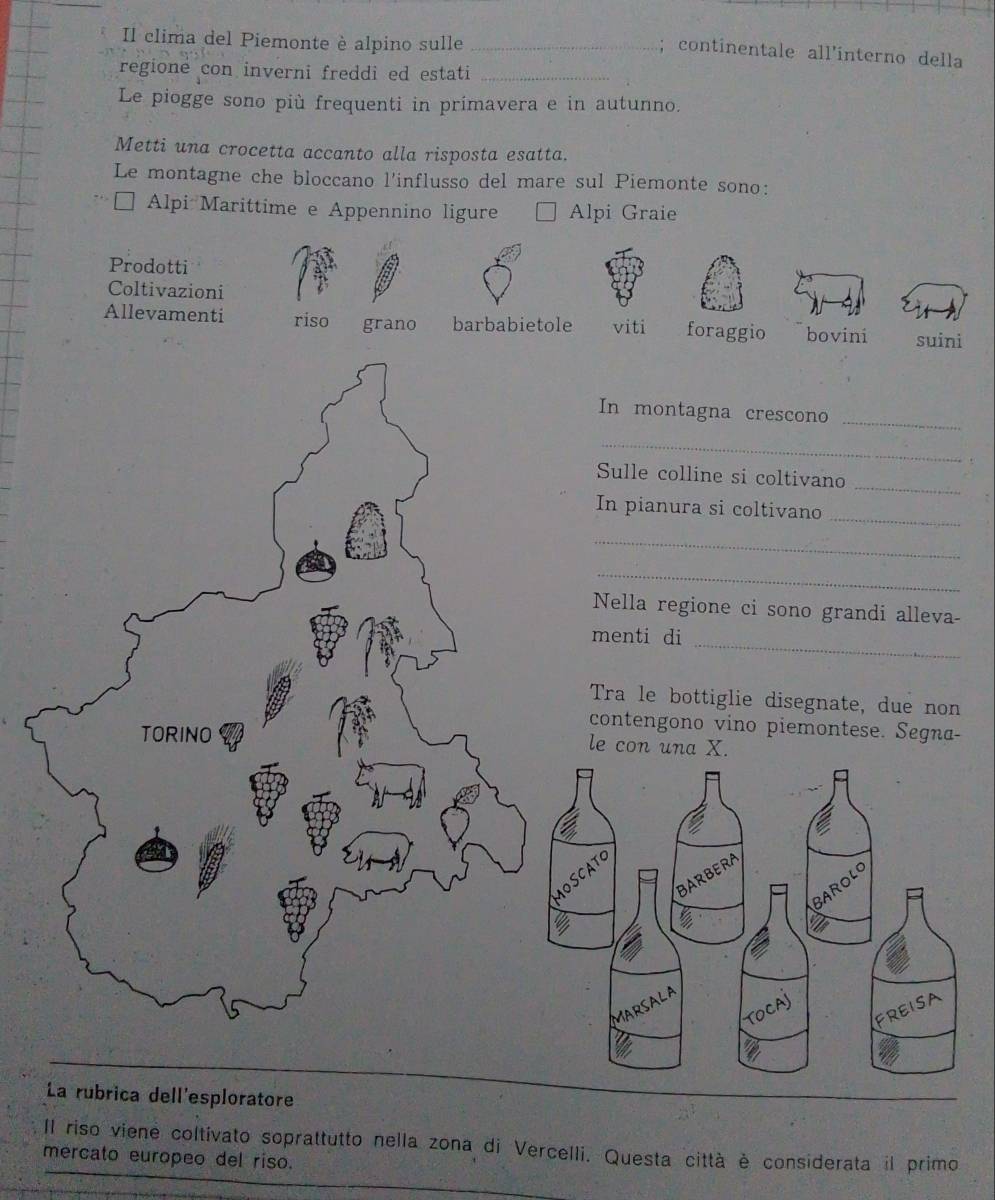 Il clima del Piemonte è alpino sulle ; continentale all'interno della
regione con inverni freddi ed estati
Le piogge sono più frequenti in primavera e in autunno.
Metti una crocetta accanto alla risposta esatta.
Le montagne che bloccano l'influsso del mare sul Piemonte sono:
Alpi Marittime e Appennino ligure Alpi Graie
Prodotti
Coltivazioni
Allevamenti
riso grano barbabietole viti foraggio bovini suini
In montagna crescono
Sulle colline si coltivano
In pianura si coltivano
Nella regione ci sono grandi alleva-
menti di
Tra le bottiglie disegnate, due non
contengono vino piemontese. Segna-
le con una X.
TORINO
MOSCATO
BARBERA
BAROLO
MARSALA
TOCAJ
FREISA
La rubrica dell'esploratore
Il riso viene coltivato soprattutto nella zona di Vercelli. Questa città è considerata il primo
mercato europeo del riso.